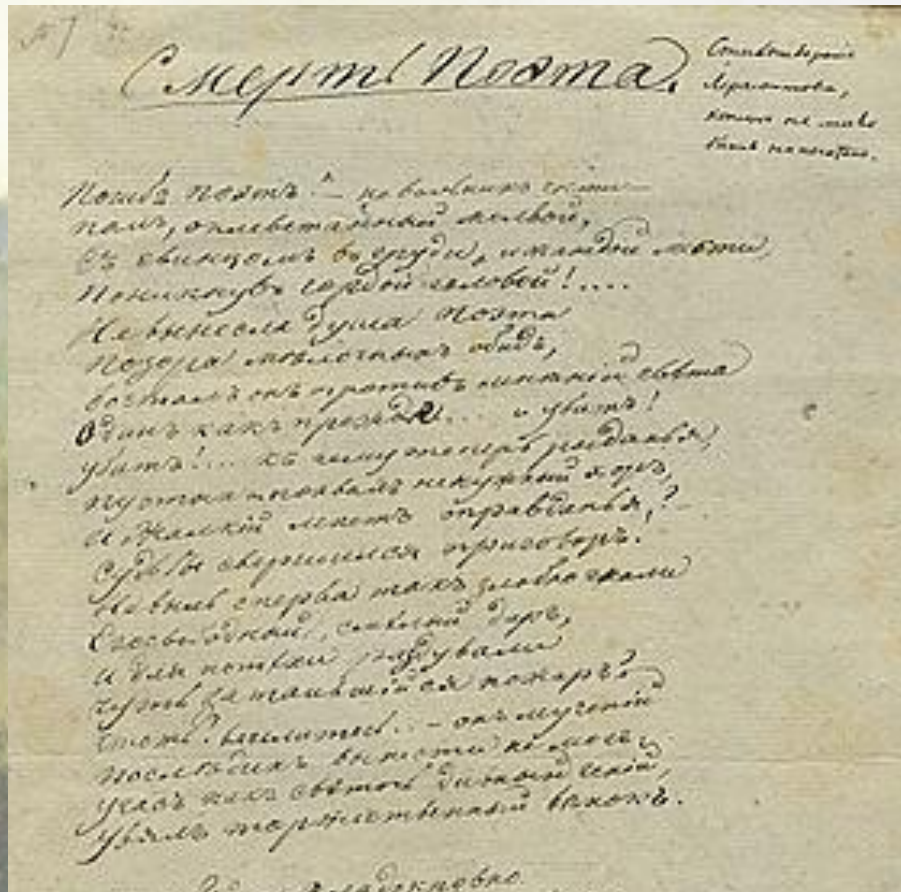 Смерть Поэта.
Стихотворенiе
Лермонтова,
не
было напечатано.
Погибъ поэтъ! – невольникъ чести –
палъ, оклеветанный молвой,
съ свинцомъ въ груди, и жаждой мести,
Поникнувъ гордой головой!....
Не вынесла душа поэта
позора мелочныхъ обидъ,
возсталъ онъ противъ мнѣнiй свѣта
Одинъ какъ прежде.... и убитъ!
убитъ!.... къ чему теперь рыданья,
пустыхъ похвалъ ненужный хоръ,
и жалкiй лепетъ оправданья?
судьбы свершился приговоръ!
Не вы ль сперва такъ злобно гнали
Его свободный, смѣлый даръ,
и для потѣхи раздували
чуть затаившiйся пожаръ?
чтожъ? веселитесь... – онъ мученiй
послѣднихъ вынести не могъ,
угасъ какъ свѣточь дивный генiй,
увялъ торжественный вѣнокъ.
хладнокровно